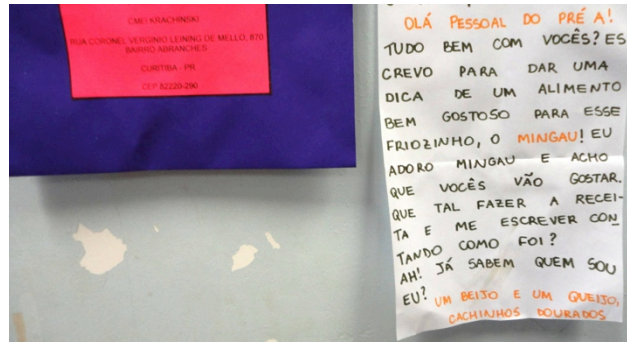 CMEI KRACHINSKI
RUA CORONEL VERGINIO LEINING DE MELLO, 870
BAIRRO ABRANCHES
CURITIBA - PR
CEP 82220-290
OLÁ PESSOAL DO PRÉ A!
TUDO BEM COM VOCÊS? ES
CREVO PARA DAR UMA
DICA DE UM ALIMENTO
BEM GOSTOSO PARA ESSE
FRIOZINHO, O MINGAU! EU
ADORO MINGAU E ACHO
QUE VOCÊS VÃO GOSTAR.
QUE TAL FAZER A RECEI-
TA E ME ESCREVER CON
TANDO COMO FOI?
AH! JÁ SABEM QUEM SOU
EU? UM BEIJO E UM QUEIJO,
CACHINHOS DOURADOS